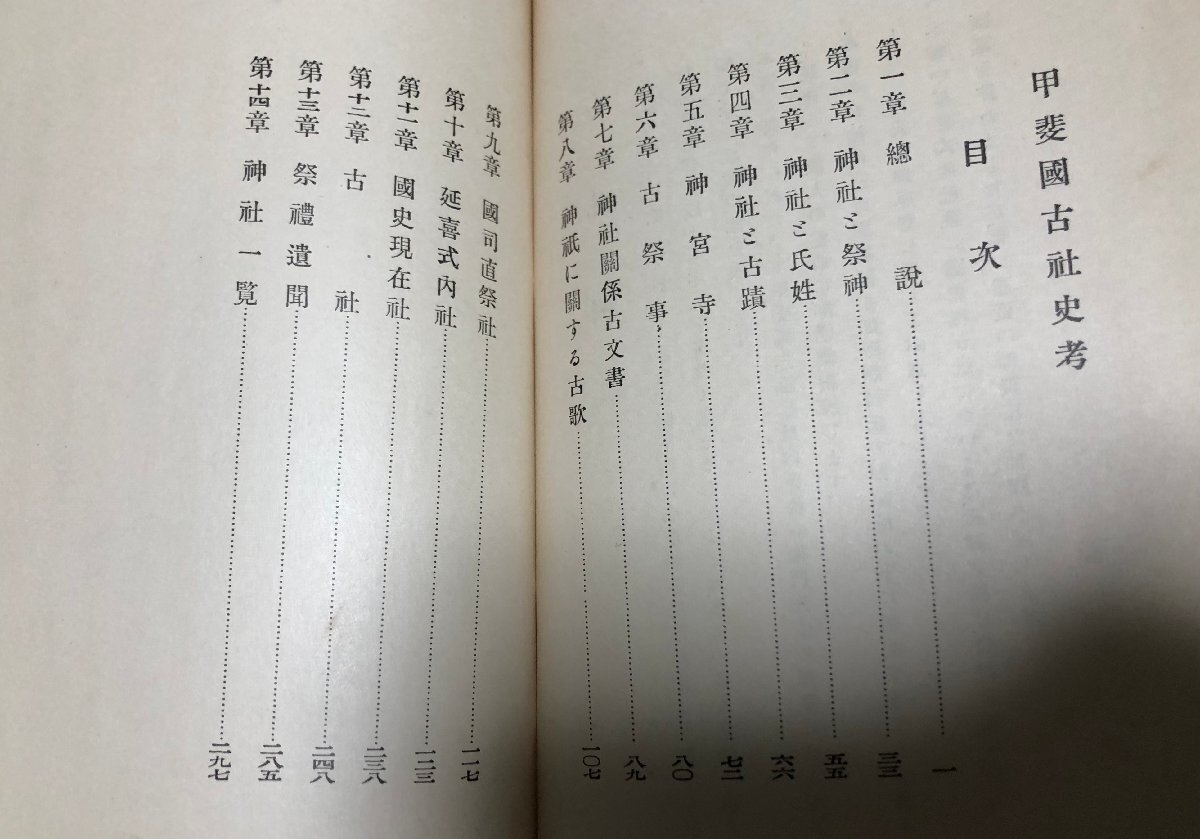 甲斐國古社史考
目次
第一章 總說……一
第二章 神社と祭神……三三
第三章 神社と氏姓……五五
第四章 神社と古蹟……六六
第五章 神宮寺……七二
第六章 古祭事……八〇
第七章 神社關係古文書……八九
第八章 神祇に關する古歌……一〇七
第九章 國司直祭社……一一七
第十章 延喜式內社……一二三
第十一章 國史現在社……二三八
第十二章 古社……二四八
第十三章 祭禮遺聞……二八五
第十四章 神社一覽……二九七